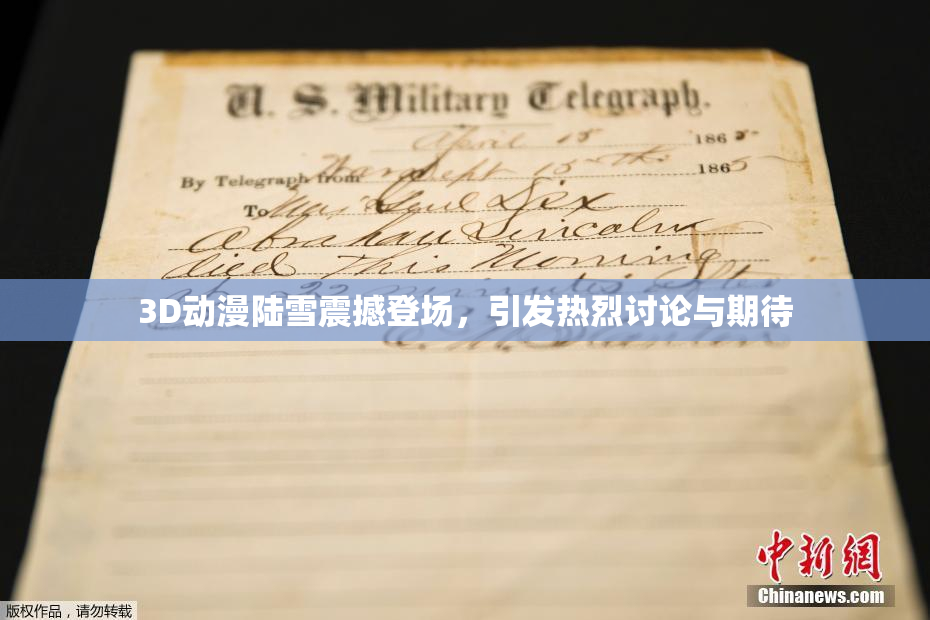 U. S. Military Telegraph.
April 15 1865
By Telegraph from War Dept 15th 1865
To Maj Genl Dix
Abraham Lincoln
died This Morning
at 22 minutes after
3D动漫陆雪震撼登场，引发热烈讨论与期待
E. M. Stanton
中新网
Chinanews.com
版权作品，请勿转载